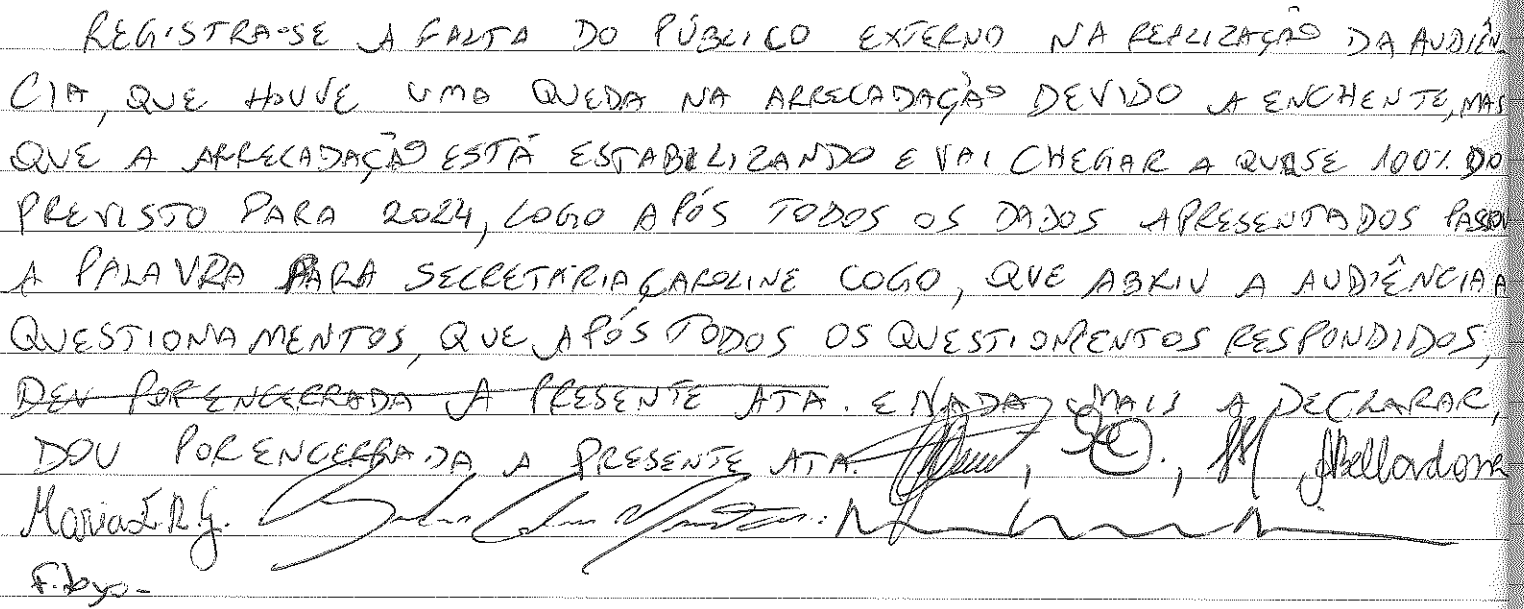 REGISTRA-SE A FALTA DO PÚBLICO EXTERNO NA REALIZAÇÃO DA AUDIÊN
CIA, QUE HOUVE UMA QUEDA NA ARRECADAÇÃO DEVIDO A ENCHENTE, MAS
QUE A ARRECADAÇÃO ESTÁ ESTABILIZANDO E VAI CHEGAR A QUASE 100% DO
PREVISTO PARA 2024, LOGO APÓS TODOS OS DADOS APRESENTADOS PASSOU
A PALAVRA PARA SECRETÁRIA CAROLINE COGO, QUE ABRIU A AUDIÊNCIA A
QUESTIONAMENTOS, QUE APÓS TODOS OS QUESTIONMENTOS RESPONDIDOS,
DEU POR ENCERRADA A PRESENTE ATA. E NADA MAIS A DECLARAR,
DOU POR ENCERRADA A PRESENTE ATA. ABellardona
Maria E.R.G.